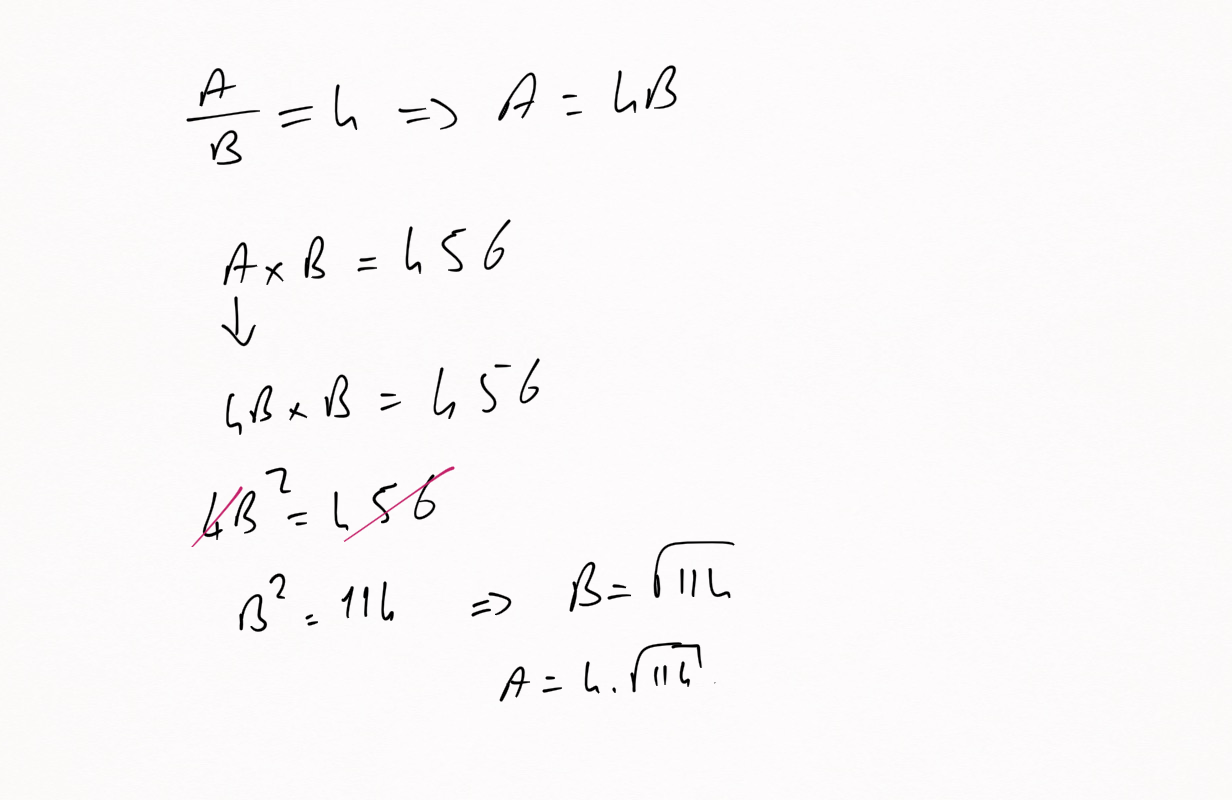 A/B = 4 => A = 4B
A x B = 456
↓
4B x B = 456
4B² = 456
B² = 114 => B = √114
A = 4.√114